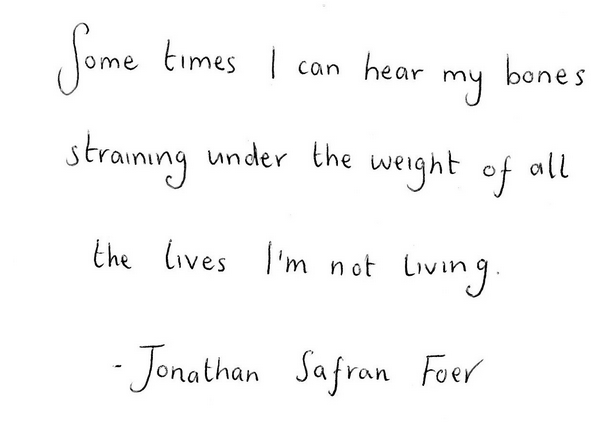 Some times I can hear my bones
straining under the weight of all
the lives I'm not living.
- Jonathan Safran Foer